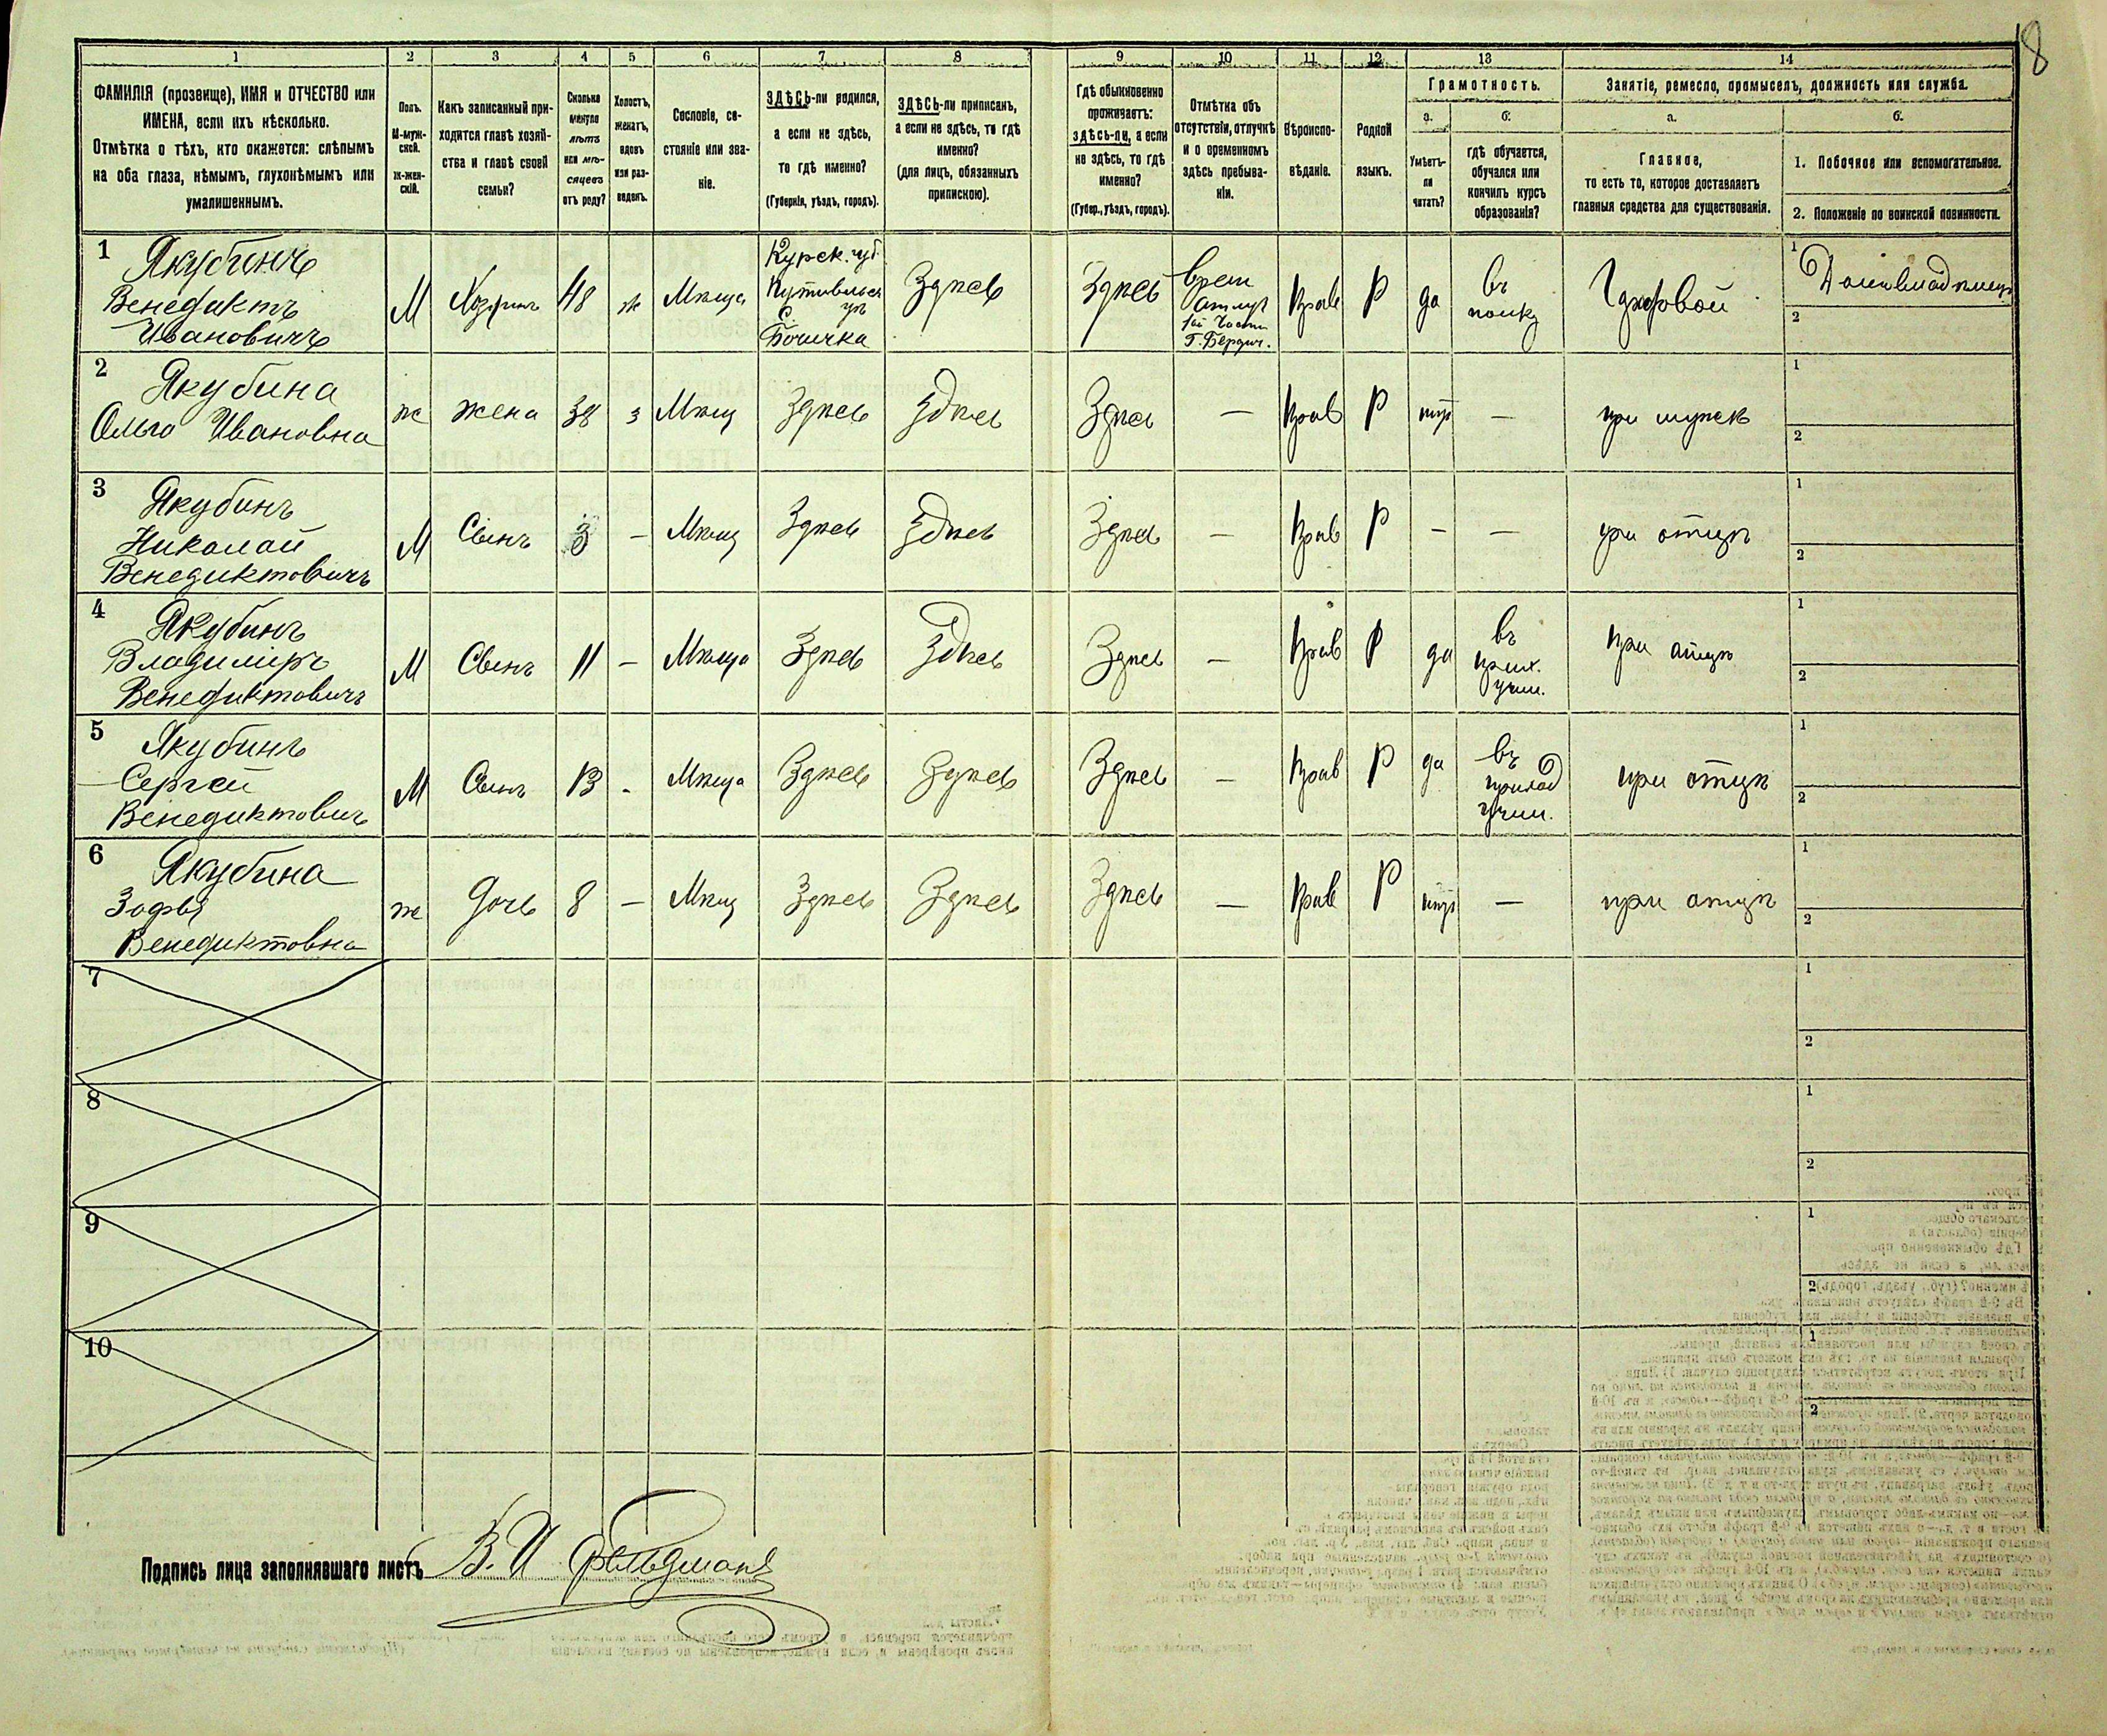 8
1
2
3
4
5
6
7
8
9
10
11
12
13
14
ФАМИЛІЯ (прозвище), ИМЯ и ОТЧЕСТВО или
ИМЕНА, если ихъ нѣсколько.
Отмѣтка о тѣхъ, кто окажется: слѣпымъ
на оба глаза, нѣмымъ, глухонѣмымъ или
умалишеннымъ.
Полъ.
М-муж-
ской.
Ж-жен-
скій.
Какъ записанный при-
ходится главѣ хозяй-
ства и главѣ своей
семьи?
Сколько
минуло
лѣтъ
или мѣ-
сяцевъ
отъ роду?
Холостъ,
женатъ,
вдовъ
или раз-
веденъ.
Сословіе, со-
стояніе или зва-
ніе.
ЗДѢСЬ-ли родился,
а если не здѣсь,
то гдѣ именно?
(Губернія, уѣздъ, городъ).
ЗДѢСЬ-ли приписанъ,
а если не здѣсь, то гдѣ
именно?
(для лицъ, обязанныхъ
припискою).
Гдѣ обыкновенно
проживаетъ:
здѣсь-ли, а если
не здѣсь, то гдѣ
именно?
(Губер., уѣздъ, городъ).
Отмѣтка объ
отсутствіи, отлучкѣ
и о временномъ
здѣсь пребыва-
ніи.
Вѣроиспо-
вѣданіе.
Родной
языкъ.
Грамотность.
а.
Умѣетъ-
ли
читать?
б.
гдѣ обучается,
обучался или
кончилъ курсъ
образованія?
Занятіе, ремесло, промыселъ, должность или служба.
а.
Главное,
то есть то, которое доставляетъ
главныя средства для существованія.
б.
1. Побочное или вспомогательное.
2. Положеніе по воинской повинности.
1
Якубинъ
Венедиктъ
Ивановичъ
М
Хозяинъ
48
ж
Мѣща
Курск. губ.
Путивльск
уѣ
с.
Бочечка
Здѣсь
Здѣсь
врем
отлуч
1ой Части
Г. Бердич.
Прав
Р
да
въ
полку
1
Домовладѣлец
2
2
Якубина
Ольга Ивановна
ж
жена
38
з
Мѣщ
Здѣсь
Здѣсь
Здѣсь
—
Прав
Р
нѣт
—
при мужѣ
1
2
3
Якубинъ
Николай
Венедиктовичъ
М
Сынъ
3
—
Мѣщ
Здѣсь
Здѣсь
Здѣсь
—
Прав
Р
—
—
при отцѣ
1
2
4
Якубинъ
Владиміръ
Венедиктовичъ
М
Сынъ
11
—
Мѣща
Здѣсь
Здѣсь
Здѣсь
—
Прав
Р
да
въ
прих.
учил.
при отцѣ
1
2
5
Якубинъ
Сергей
Венедиктович
М
Сынъ
13
-
Мѣща
Здѣсь
Здѣсь
Здѣсь
—
Прав
Р
да
въ
приход
учил.
при отцѣ
1
2
6
Якубина
Зофья
Венедиктовна
ж
Дочь
8
—
Мѣщ
Здѣсь
Здѣсь
Здѣсь
—
Прав
Р
нѣт
—
при отцѣ
1
2
7
1
2
8
1
2
9
1
2
10
1
2
Подпись лица заполнявшаго листъ В. И Фельдманъ